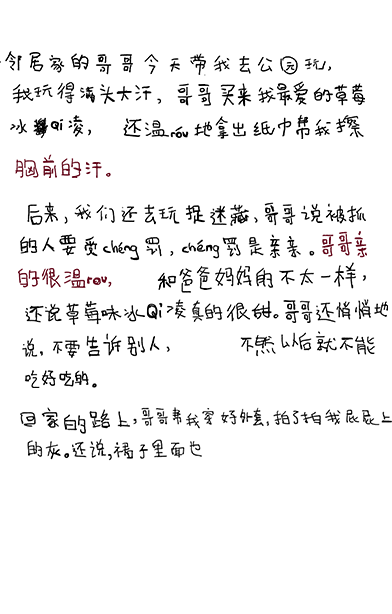 邻居家的哥哥今天带我去公园玩,
我玩得满头大汗,哥哥买来我最爱的草莓
冰Qi凌,还温róu地拿出纸巾帮我擦
胸前的汗。
后来,我们还去玩捉迷藏,哥哥说被抓
的人要受chéng罚,chéng罚是亲亲。哥哥亲
的很温rou,和爸爸妈妈的不太一样,
还说草莓味冰Qi凌真的很甜。哥哥还悄悄地
说,不要告诉别人,不然以后就不能
吃好吃的。
回家的路上,哥哥帮我穿好外套,拍了拍我屁屁上
的灰。还说,裙子里面也